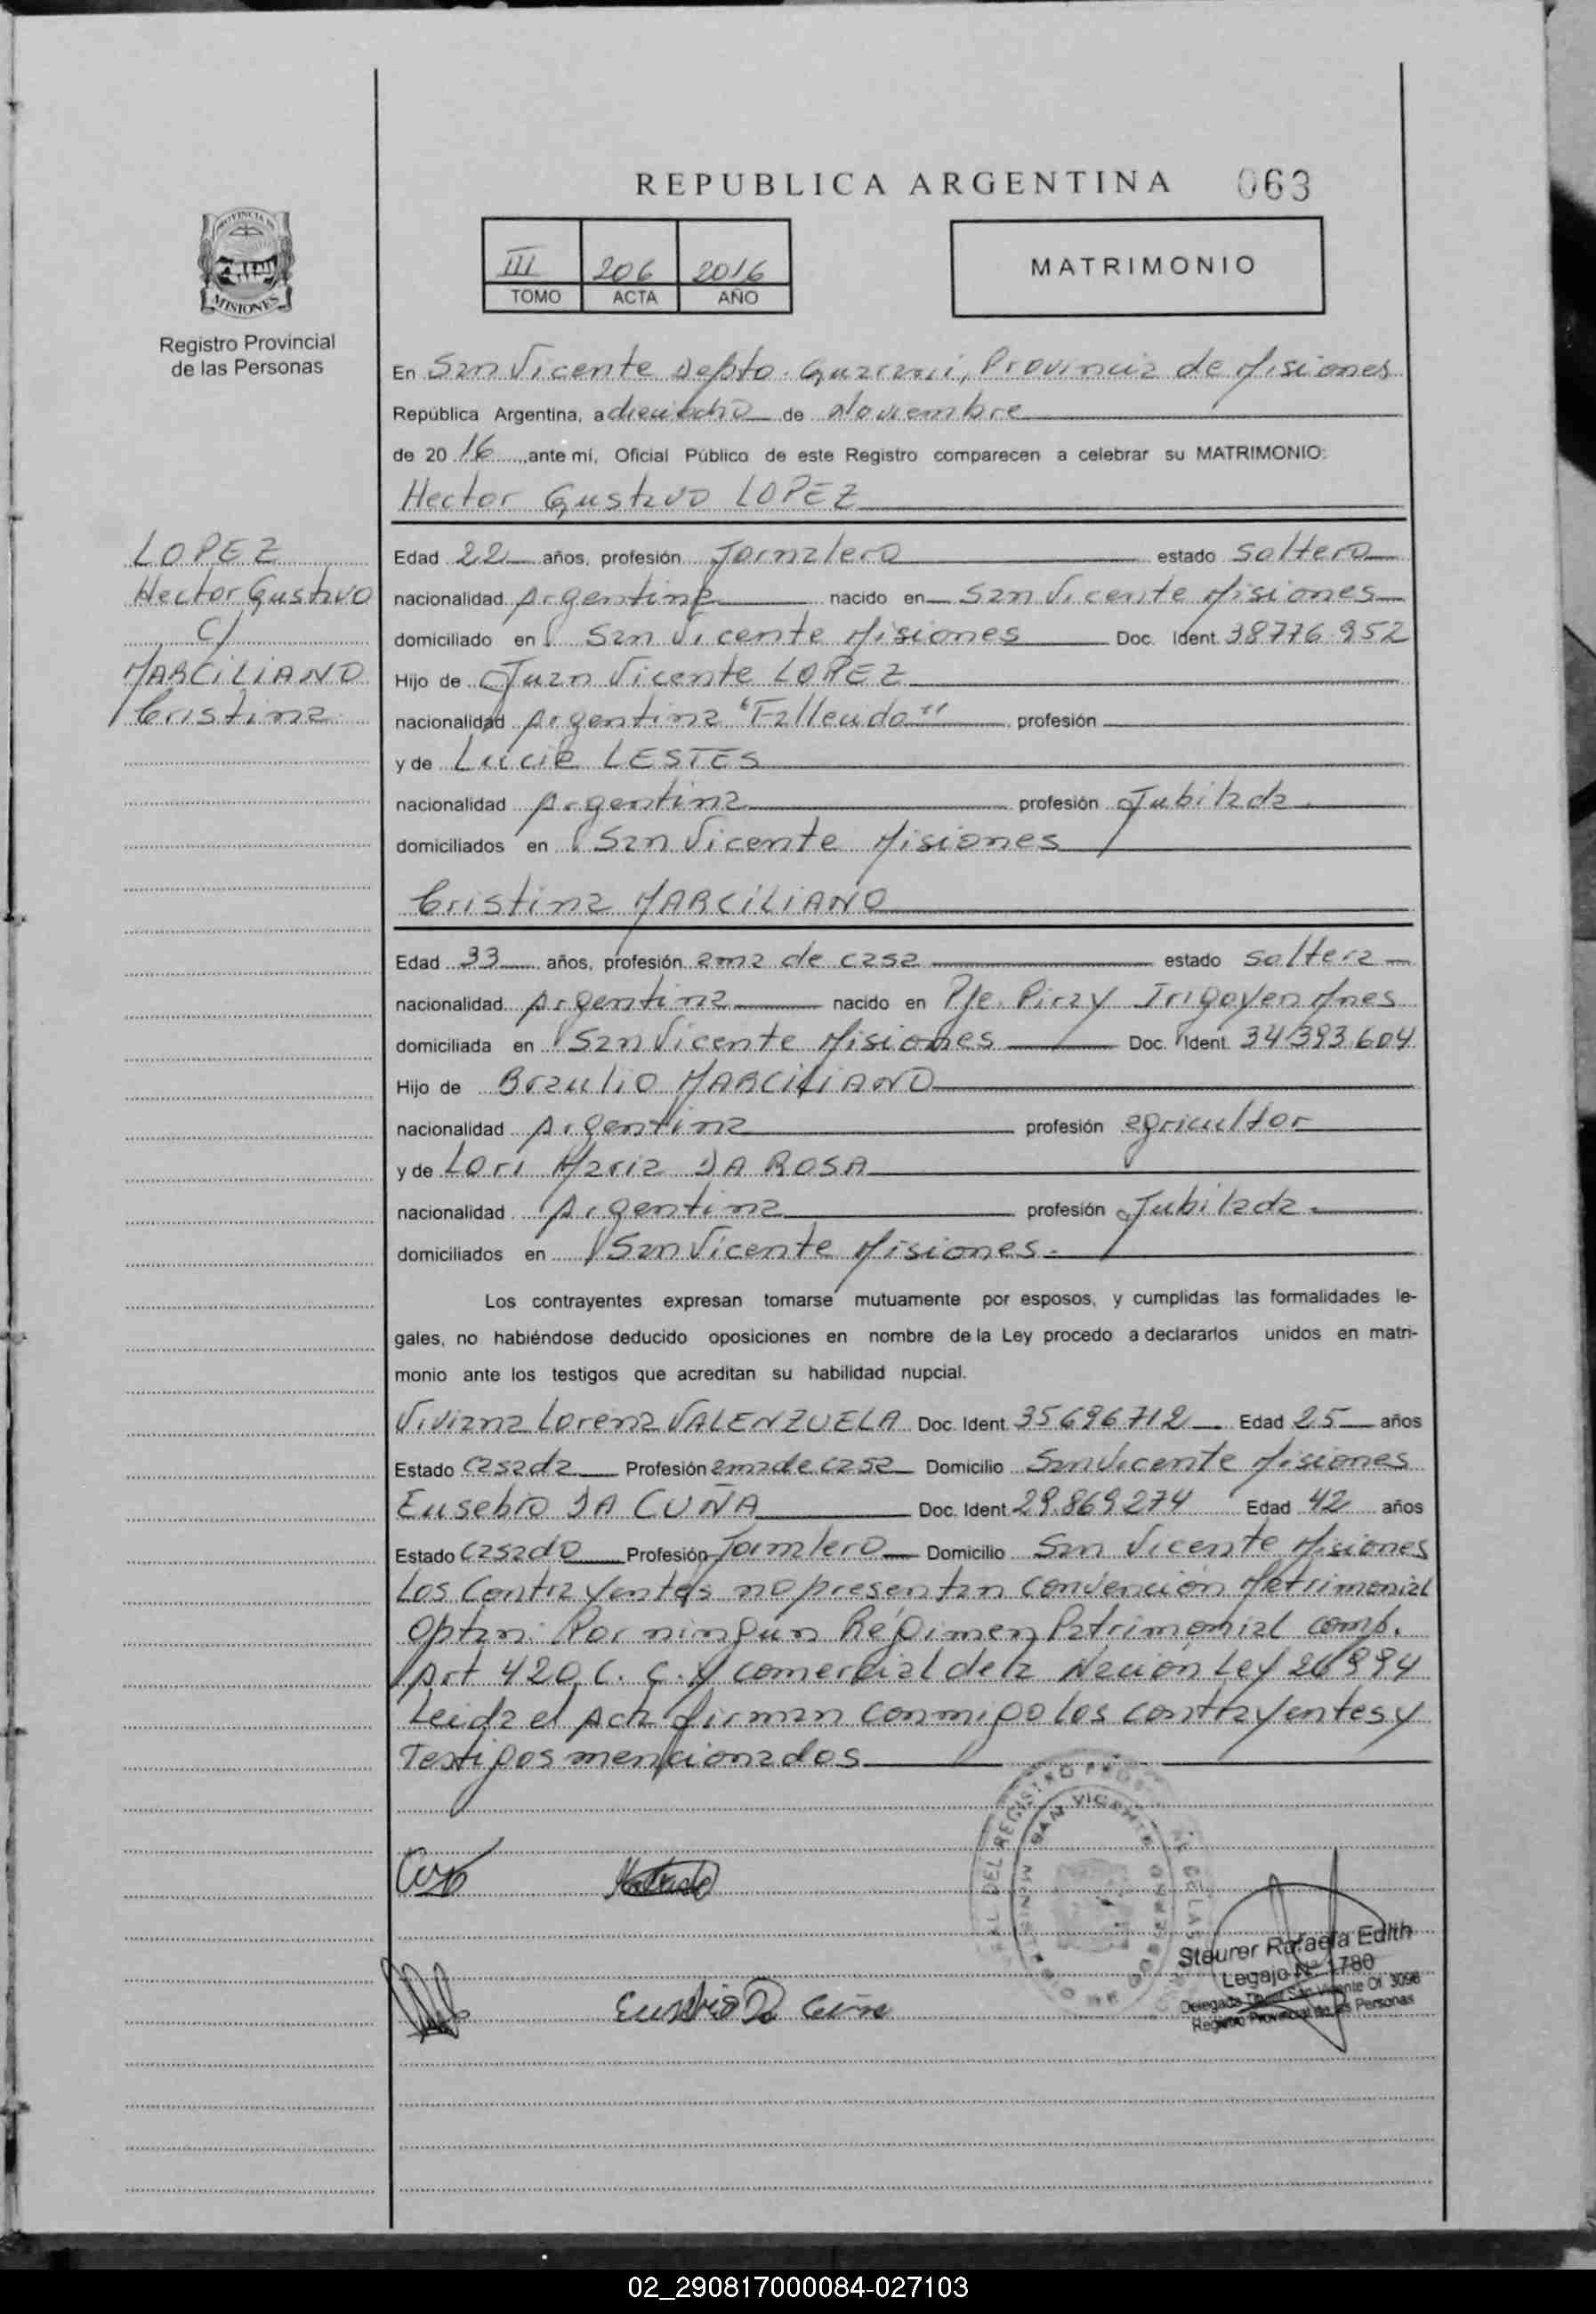 REPUBLICA ARGENTINA 063
PROVINCIA DE
MISIONES
Registro Provincial
de las Personas
III 206 2016
TOMO ACTA AÑO
MATRIMONIO
En San Vicente Depto. Guaraní, Provincia de Misiones
República Argentina, a dieciocho de Noviembre
de 20 16 ,ante mí, Oficial Público de este Registro comparecen a celebrar su MATRIMONIO:
Hector Gustavo LOPEZ
LOPEZ
Hector Gustavo
C/
MARCILIANO
Cristina
Edad 22 años, profesión Jornalero estado Soltero
nacionalidad Argentina nacido en San Vicente Misiones
domiciliado en San Vicente Misiones Doc. Ident. 38776.952
Hijo de Juan Vicente LOPEZ
nacionalidad Argentina "Falleudo" profesión
y de Lucia LESTES
nacionalidad Argentina profesión Jubilada
domiciliados en San Vicente Misiones
Cristina MARCILIANO
Edad 33 años, profesión ama de casa estado Soltera
nacionalidad Argentina nacido en Pje. Piray Irigoyen Mnes
domiciliada en San Vicente Misiones Doc. Ident. 34393.604
Hijo de Braulio MARCILIANO
nacionalidad Argentina profesión agricultor
y de Lori Maria DA ROSA
nacionalidad Argentina profesión Jubilada
domiciliados en San Vicente Misiones.
Los contrayentes expresan tomarse mutuamente por esposos, y cumplidas las formalidades le-
gales, no habiéndose deducido oposiciones en nombre de la Ley procedo a declararlos unidos en matri-
monio ante los testigos que acreditan su habilidad nupcial.
Viviana Lorena VALENZUELA Doc. Ident. 35696712 Edad 25 años
Estado Casada Profesión ama de casa Domicilio San Vicente Misiones
Eusebio DA CUÑA Doc. Ident. 29.869.274 Edad 42 años
Estado Casado Profesión Jornalero Domicilio San Vicente Misiones
Los Contrayentes no presentan convención Matrimonial
Optan Por ningún Régimen Patrimonial comf.
Art 420 C. C. y comercial de la Nación Ley 26994
Leida el Acta firman conmigo los contrayentes y
Testigos mencionados
SAN VICENTE
Eusebio Da Cuña
Steurer Rafaela Edith
Legajo Nº 1780
Delegada Titular San Vicente Of. 3098
Registro Provincial de las Personas
02_290817000084-027103